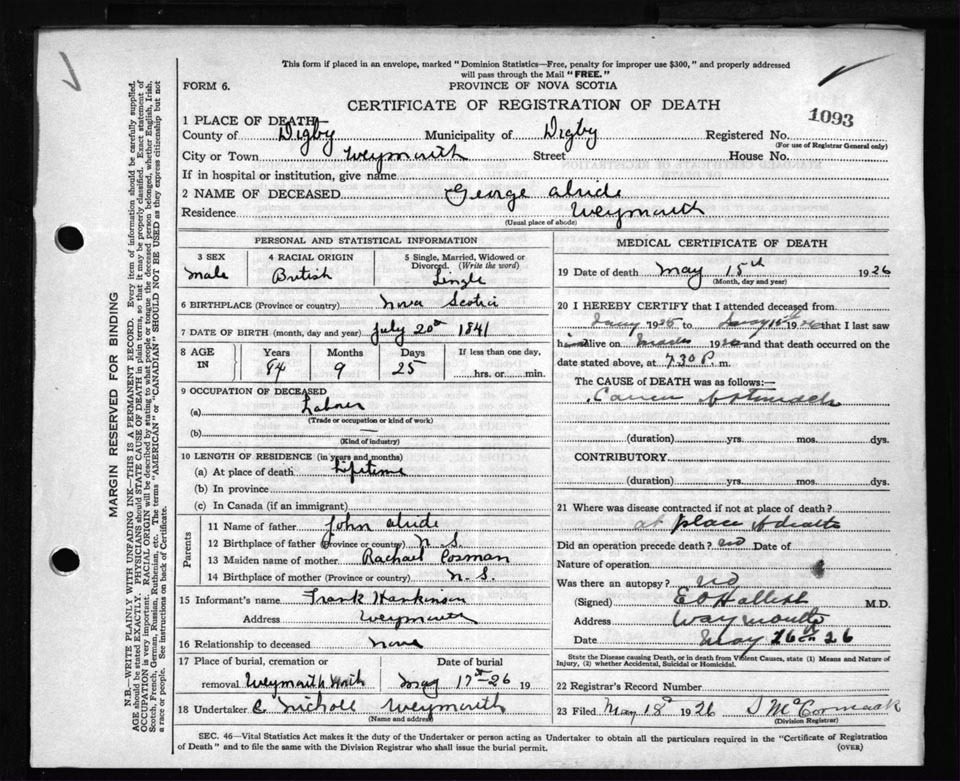 This form if placed in an envelope, marked "Dominion Statistics—Free, penalty for improper use $300," and properly addressed
will pass through the Mail "FREE."
FORM 6.
PROVINCE OF NOVA SCOTIA
CERTIFICATE OF REGISTRATION OF DEATH
1093
1 PLACE OF DEATH
County of Digby Municipality of Digby Registered No.
(For use of Registrar General only)
City or Town Weymouth Street House No.
If in hospital or institution, give name
2 NAME OF DECEASED George
Residence Weymouth
(Usual place of abode)
PERSONAL AND STATISTICAL INFORMATION
3 SEX 4 RACIAL ORIGIN 5 Single, Married, Widowed or Divorced. (Write the word)
Male British Single
6 BIRTHPLACE (Province or country) Nova Scotia
7 DATE OF BIRTH (month, day and year) July 20th 1841
8 AGE IN Years Months Days If less than one day,
84 9 25 hrs. or min.
9 OCCUPATION OF DECEASED
(a) Labrer
(Trade or occupation or kind of work)
(b) —
(Kind of industry)
10 LENGTH OF RESIDENCE (in years and months)
(a) At place of death Lifetime
(b) In province
(c) In Canada (if an immigrant)
Parents
11 Name of father John
12 Birthplace of father (Province or country) N.S.
13 Maiden name of mother Rachael Cosman
14 Birthplace of mother (Province or country) N.S.
15 Informant's name Frank Hankinson
Address Weymouth
16 Relationship to deceased None
17 Place of burial, cremation or Date of burial
removal Weymouth North May 17th 26 19
18 Undertaker C. Nichols Weymouth
(Name and address)
MEDICAL CERTIFICATE OF DEATH
19 Date of death May 15th 1926
(Month, day and year)
20 I HEREBY CERTIFY that I attended deceased from
1925 to 1926 that I last saw
him alive on 1926 and that death occurred on the
date stated above, at 7.30 P. m.
The CAUSE OF DEATH was as follows:—
Cancer of Stomach
(duration) yrs. mos. dys.
CONTRIBUTORY
(duration) yrs. mos. dys.
21 Where was disease contracted if not at place of death?
at place of death
Did an operation precede death? no Date of
Nature of operation
Was there an autopsy? no
(Signed) M.D.
Address Waymouth
Date May 16th 26
State the Disease causing Death, or in death from Violent Causes, state (1) Means and Nature of
Injury, (2) whether Accidental, Suicidal or Homicidal.
22 Registrar's Record Number
23 Filed May 18th 1926 McCormack
(Division Registrar)
SEC. 46—Vital Statistics Act makes it the duty of the Undertaker or person acting as Undertaker to obtain all the particulars required in the "Certificate of Registration
of Death" and to file the same with the Division Registrar who shall issue the burial permit. (OVER)
MARGIN RESERVED FOR BINDING
N.B.—WRITE PLAINLY WITH UNFADING INK—THIS IS A PERMANENT RECORD. Every item of information should be carefully supplied.
AGE should be stated EXACTLY. PHYSICIANS should STATE CAUSE OF DEATH in plain terms, so that it may be properly classified. Exact statement of
OCCUPATION is very important. RACIAL ORIGIN will be described by stating to what people or tongue the deceased person belonged, whether English, Irish,
Scotch, French, German, Russian, Ruthenian, etc. The terms "AMERICAN" or "CANADIAN" SHOULD NOT BE USED as they express citizenship but not
a race or people. See instructions on back of Certificate.